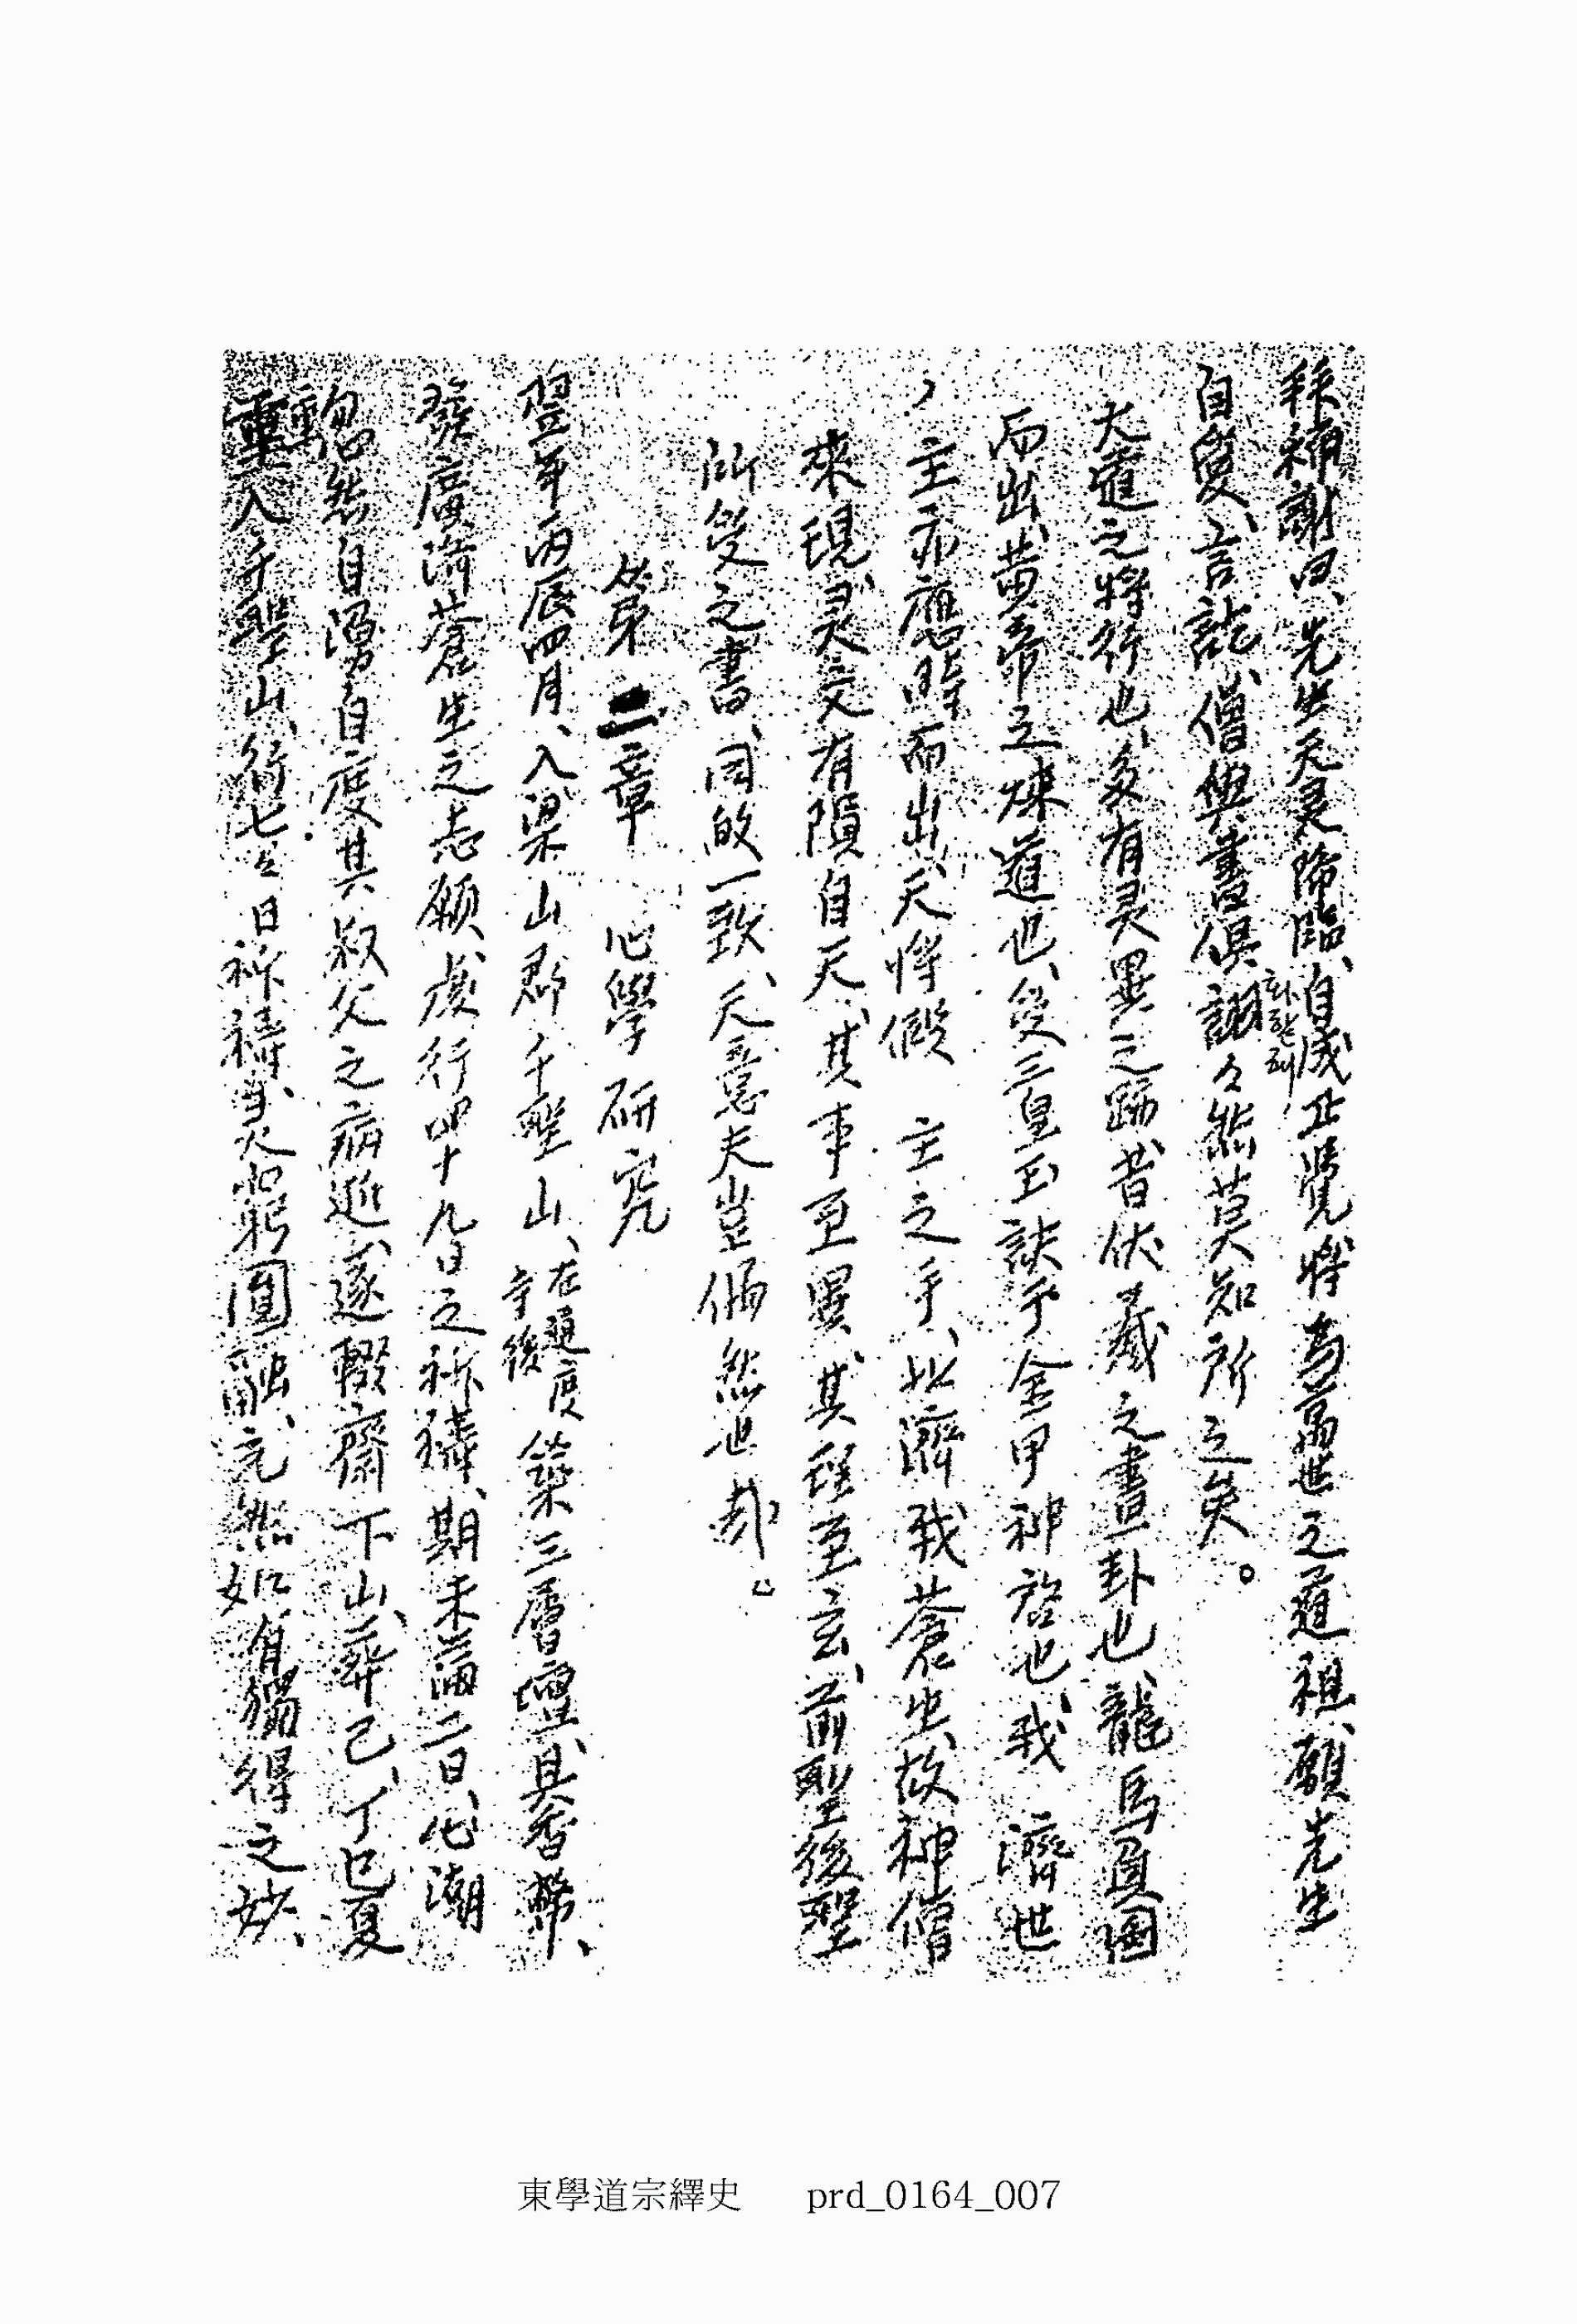 拜稱謝曰、先生天灵降臨、自成正覺、將爲萬世之道祖、願先生
自愛、言訖、僧與書俱翩々然莫知所之矣。
大道之將行也、多有灵異之跡、昔伏羲之畫卦也、龍馬負圖
而出、黃帝之煉道也、受三皇玉訣于金甲神詔也、我 濟世
主亦應時而出、天將假 主之手、以濟我蒼生、故神僧
來現、灵文有隕自天、其事至異、其理至玄、前聖後聖
所受之書、同 一致、天意夫豈偶然也哉。
第二章 心學研究
翌年丙辰四月、入梁山郡千聖山、在通度寺後 築三層壇、具香幣、
發廣濟蒼生之志願、虔行四十九日之祈禱、期未滿二日、心潮
忽然自湧、自度其叔父之病逝、遂輟齋下山、葬已、丁巳夏
重入千聖山、行七々日祈禱、 圓融、完然如有獨得之妙、
東學道宗繹史 prd_0164_007